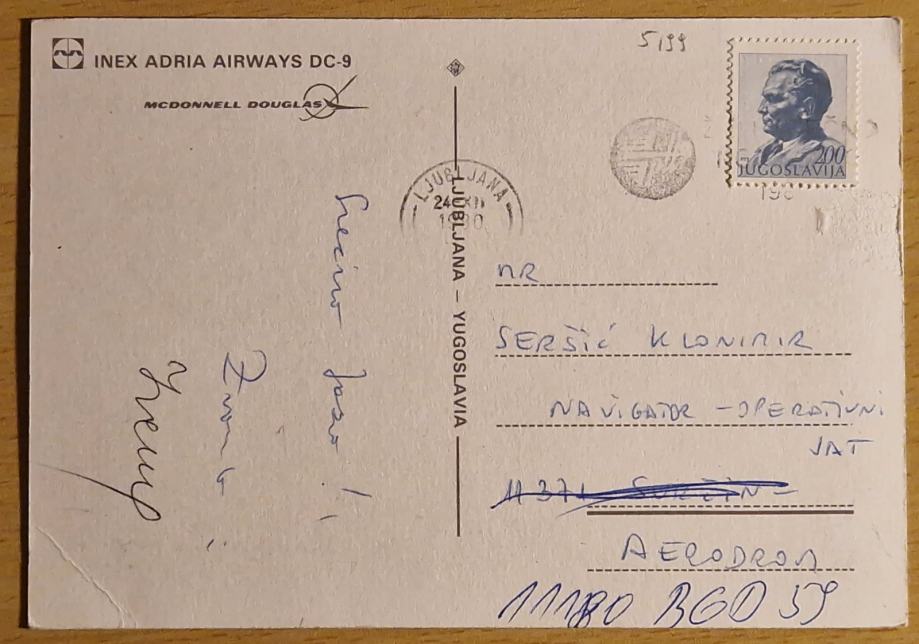 INEX ADRIA AIRWAYS DC-9
MCDONNELL DOUGLAS
5199
200
JUGOSLAVIJA
LJUBLJANA
24 XII
1980
LJUBLJANA – YUGOSLAVIA
Srećno
!
NR
SERŠIĆ KLONIRIR
NAVIGATOR - OPERATIVNI
JAT
11371 SURČIN
AERODROM
11180 BGD 59